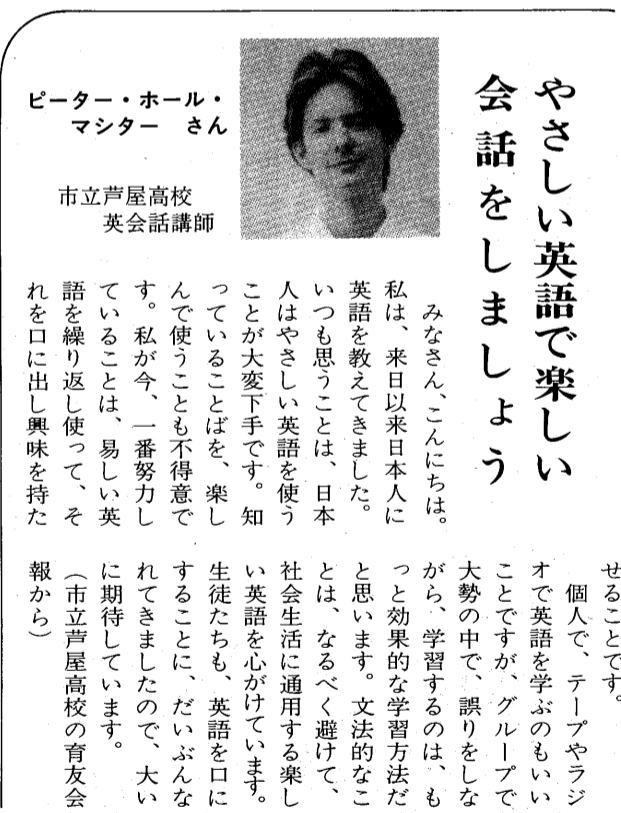 やさしい英語で楽しい
会話をしましょう
ピーター・ホール・
マシター　さん
市立芦屋高校
英会話講師
みなさん、こんにちは。
私は、来日以来日本人に
英語を教えてきました。
いつも思うことは、日本
人はやさしい英語を使う
ことが大変下手です。知
っていることばを、楽し
んで使うことも不得意で
す。私が今、一番努力し
ていることは、易しい英
語を繰り返し使って、そ
れを口に出し興味を持た
せることです。
個人で、テープやラジ
オで英語を学ぶのもいい
ことですが、グループで
大勢の中で、誤りをしな
がら、学習するのは、も
っと効果的な学習方法だ
と思います。文法的なこ
とは、なるべく避けて、
社会生活に通用する楽し
い英語を心がけています。
生徒たちも、英語を口に
することに、だいぶんな
れてきましたので、大い
に期待しています。
（市立芦屋高校の育友会
報から）